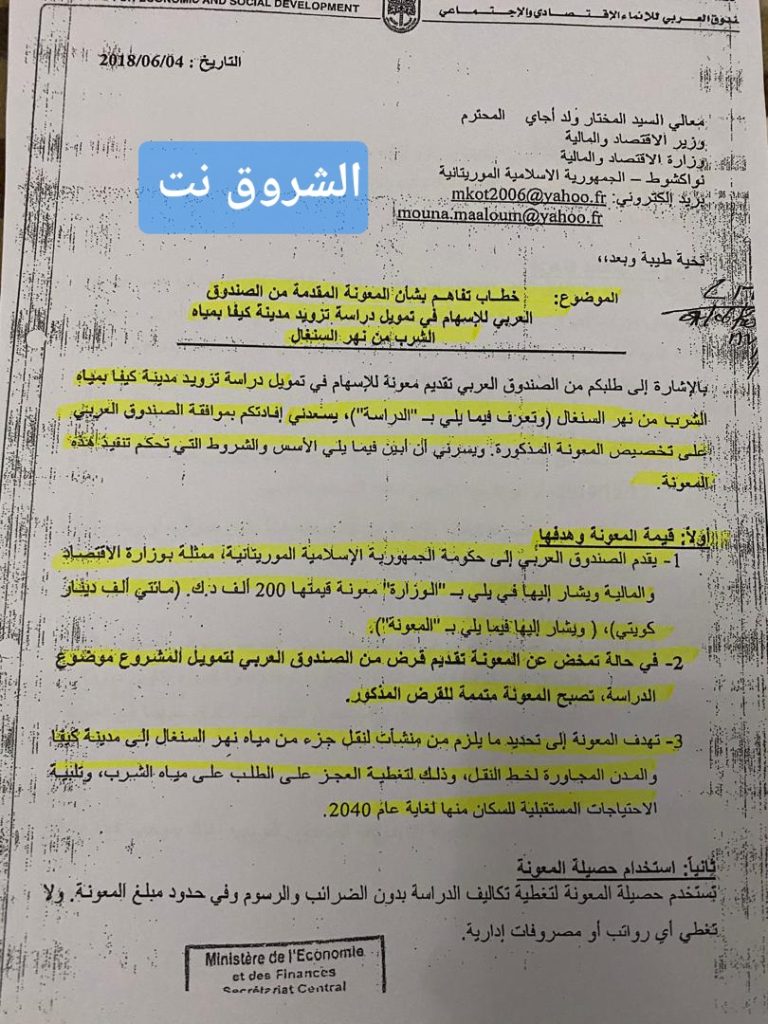 FOR ECONOMIC AND SOCIAL DEVELOPMENT
ندوق العربي للانماء الاقتصادي والاجتماعي
التاريخ : 2018/06/04
معالي السيد المختار ولد أجاي المحترم
وزير الاقتصاد والمالية
وزارة الاقتصاد والمالية
نواكشوط – الجمهورية الاسلامية الموريتانية
بريد إلكتروني: mkot2006@yahoo.fr
mouna.maaloum@yahoo.fr
الشروق نت
تحية طيبة وبعد،،
الموضوع: خطاب تفاهم بشأن المعونة المقدمة من الصندوق
العربي للإسهام في تمويل دراسة تزويد مدينة كيفا بمياه
الشرب من نهر السنغال
بالإشارة إلى طلبكم من الصندوق العربي تقديم معونة للإسهام في تمويل دراسة تزويد مدينة كيفا بمياه
الشرب من نهر السنغال (وتعرف فيما يلي بـ "الدراسة")، يسعدني إفادتكم بموافقة الصندوق العربي
على تخصيص المعونة المذكورة. ويسرني أن أبين فيما يلي الأسس والشروط التي تحكم تنفيذ هذه
المعونة.
أولاً: قيمة المعونة وهدفها
1- يقدم الصندوق العربي إلى حكومة الجمهورية الإسلامية الموريتانية، ممثلة بوزارة الاقتصاد
والمالية ويشار إليها في يلي بـ "الوزارة" معونة قيمتها 200 ألف د.ك. (مائتي ألف دينار
كويتي)، ( ويشار إليها فيما يلي بـ "المعونة").
2- في حالة تمخض عن المعونة تقديم قرض من الصندوق العربي لتمويل المشروع موضوع
الدراسة، تصبح المعونة متممة للقرض المذكور.
3- تهدف المعونة إلى تحديد ما يلزم من منشآت لنقل جزء من مياه نهر السنغال إلى مدينة كيفا
والمدن المجاورة لخط النقل، وذلك لتغطية العجز على الطلب على مياه الشرب، وتلبية
الاحتياجات المستقبلية للسكان منها لغاية عام 2040.
ثانياً: استخدام حصيلة المعونة
تستخدم حصيلة المعونة لتغطية تكاليف الدراسة بدون الضرائب والرسوم وفي حدود مبلغ المعونة. ولا
تغطي أي رواتب أو مصروفات إدارية.
Ministère de l'Economie
et des Finances
Secrétariat Central